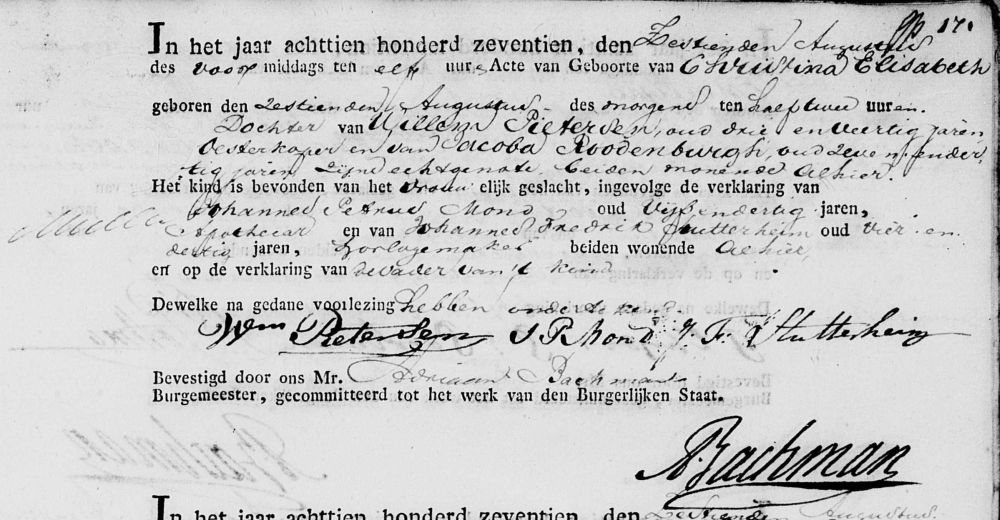 17.
In het jaar achttien honderd zeventien, den Zestienden Augustus
des voor middags ten elf uur, Acte van Geboorte van Christina Elisabeth
geboren den zestienden Augustus des morgens ten half twee uuren.
Dochter van Willem Pietersen, oud drie en Veertig jaren
Oesterkoper en van Jacoba Roodenburgh, oud zeven en der
tig jaren zijnd echtgenote, beiden wonende alhier.
Het kind is bevonden van het Vrouw elijk geslacht, ingevolge de verklaring van
Johannes Petrus Mond oud Vijf en dertig jaren,
Apothecar en van Johannes Fredrik Stutterheim oud vier en
dertig jaren, horlogemaker beiden wonende Alhier,
en op de verklaring van de Vader van 't kind.
Dewelke na gedane voorlezing hebben
Wm Pietersen J P Mond J. F. Stutterheim
Bevestigd door ons Mr. Adriaan Bachman
Burgemeester, gecommitteerd tot het werk van den Burgerlijken Staat.
A Bachman
In het jaar achttien honderd zeventien, den Zestienden Augustus